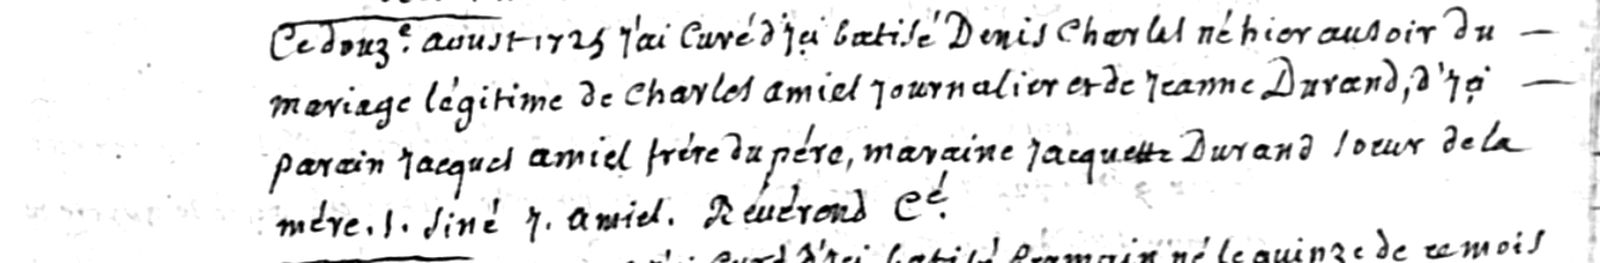 Ce douz.e aoust 1725 j'ai Curé d'jci batisé Denis Charles né hier au soir du —
mariage légitime de Charles amiel journalier et de jeanne Durand, d'jçi —
parain jacques amiel frére du pére, maraine jacquette Durand soeur de la
mére. s. siné j. amiel. Révérend C.é
Curé d'jci batisé né le quinze de ce mois